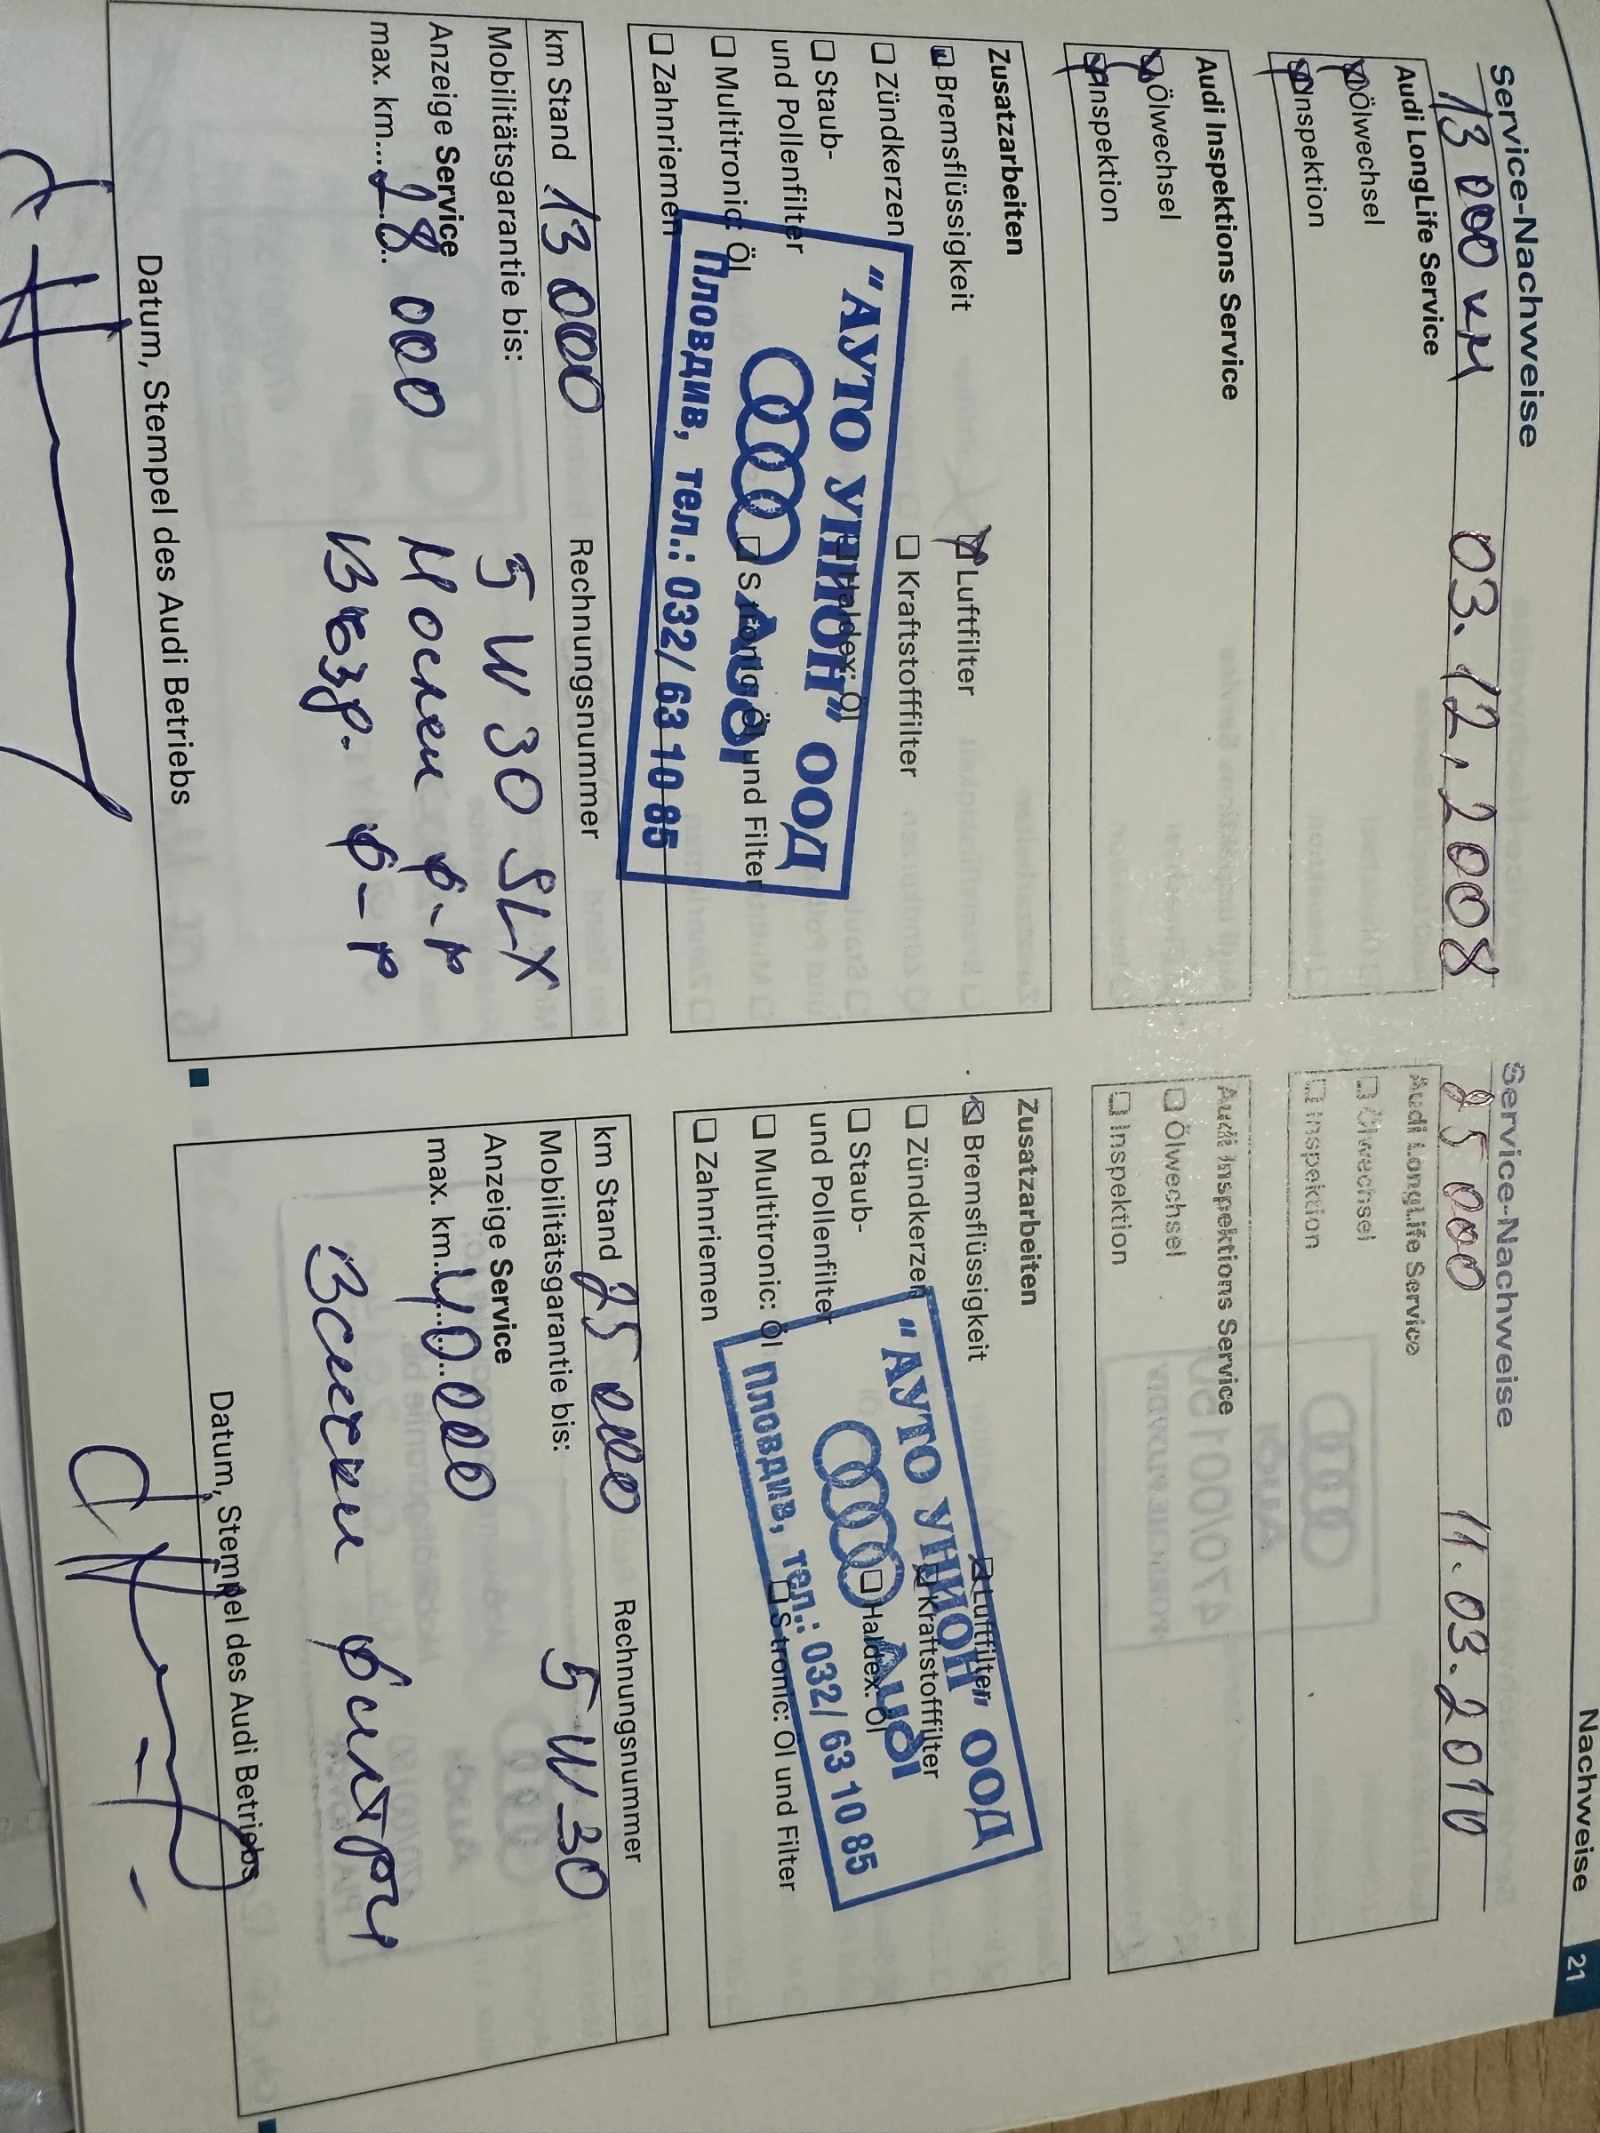 Nachweise 21
Service-Nachweise
13 000 км 03.12.2008
Audi LongLife Service
Ölwechsel
Inspektion
Audi Inspektions Service
Ölwechsel
Inspektion
Zusatzarbeiten
Bremsflüssigkeit Luftfilter
Zündkerzen Kraftstofffilter
Staub- Haldex: Öl
und Pollenfilter
Multitronic: Öl S tronic: Öl und Filter
Zahnriemen
"АУТО УНИОН" ООД
Audi
Пловдив, тел.: 032/ 63 10 85
km Stand 13 000 Rechnungsnummer
Mobilitätsgarantie bis: 5 W 30 SLX
Anzeige Service Маслен ф-р
max. km... 28 000 Възд. ф-р
Datum, Stempel des Audi Betriebs
Service-Nachweise
25 000 11.03.2010
Audi LongLife Service
Ölwechsel
Inspektion
Audi Inspektions Service
Ölwechsel
Inspektion
Zusatzarbeiten
Bremsflüssigkeit Luftfilter
Zündkerzen Kraftstofffilter
Staub- Haldex: Öl
und Pollenfilter
Multitronic: Öl S tronic: Öl und Filter
Zahnriemen
"АУТО УНИОН" ООД
Audi
Пловдив, тел.: 032/ 63 10 85
km Stand 25 000 Rechnungsnummer
Mobilitätsgarantie bis: 5 W 30
Anzeige Service
max. km... 40 000
Всички филтри
Datum, Stempel des Audi Betriebs